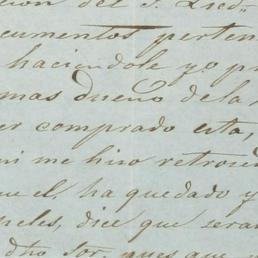 cion del S. Lied
cumentos perten
haciendole yo pr
mas dueño de la
er comprado esta,
ni me hiso retroced
que el, ha quedado y
peles, dice que seran
dho Sor. pues que